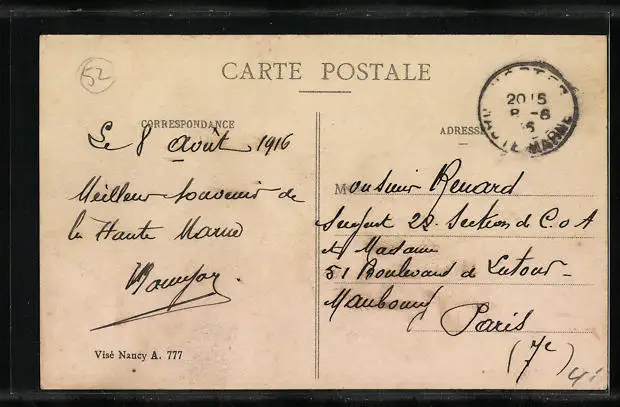 52
CARTE POSTALE
CORRESPONDANCE
Le 8 Août 1916
Meilleur souvenir de
la Haute Marne
Visé Nancy A. 777
20 15
8 -8
16
HAUTE MARNE
ADRESSE
Monsieur Renard
Sergent 22. Section de C.o A
et Madame
51 Boulevard de Latour-
Maubourg
Paris
(7e)